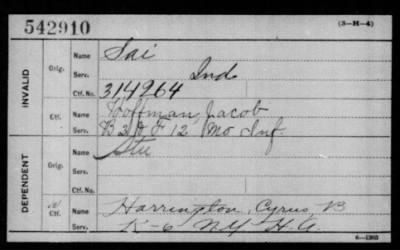 542910 (3-H-4)
INVALID
Orig.
Name Sai
Serv. Ind
Ctf. No. 314964
Ctf.
Name Hoffman, Jacob
Serv. B 12 Mo Inf
DEPENDENT
Orig.
Name
Serv.
Ctf.
Name Harrington, Cyrus B
Serv. K-6 NY H.A.
6-1903